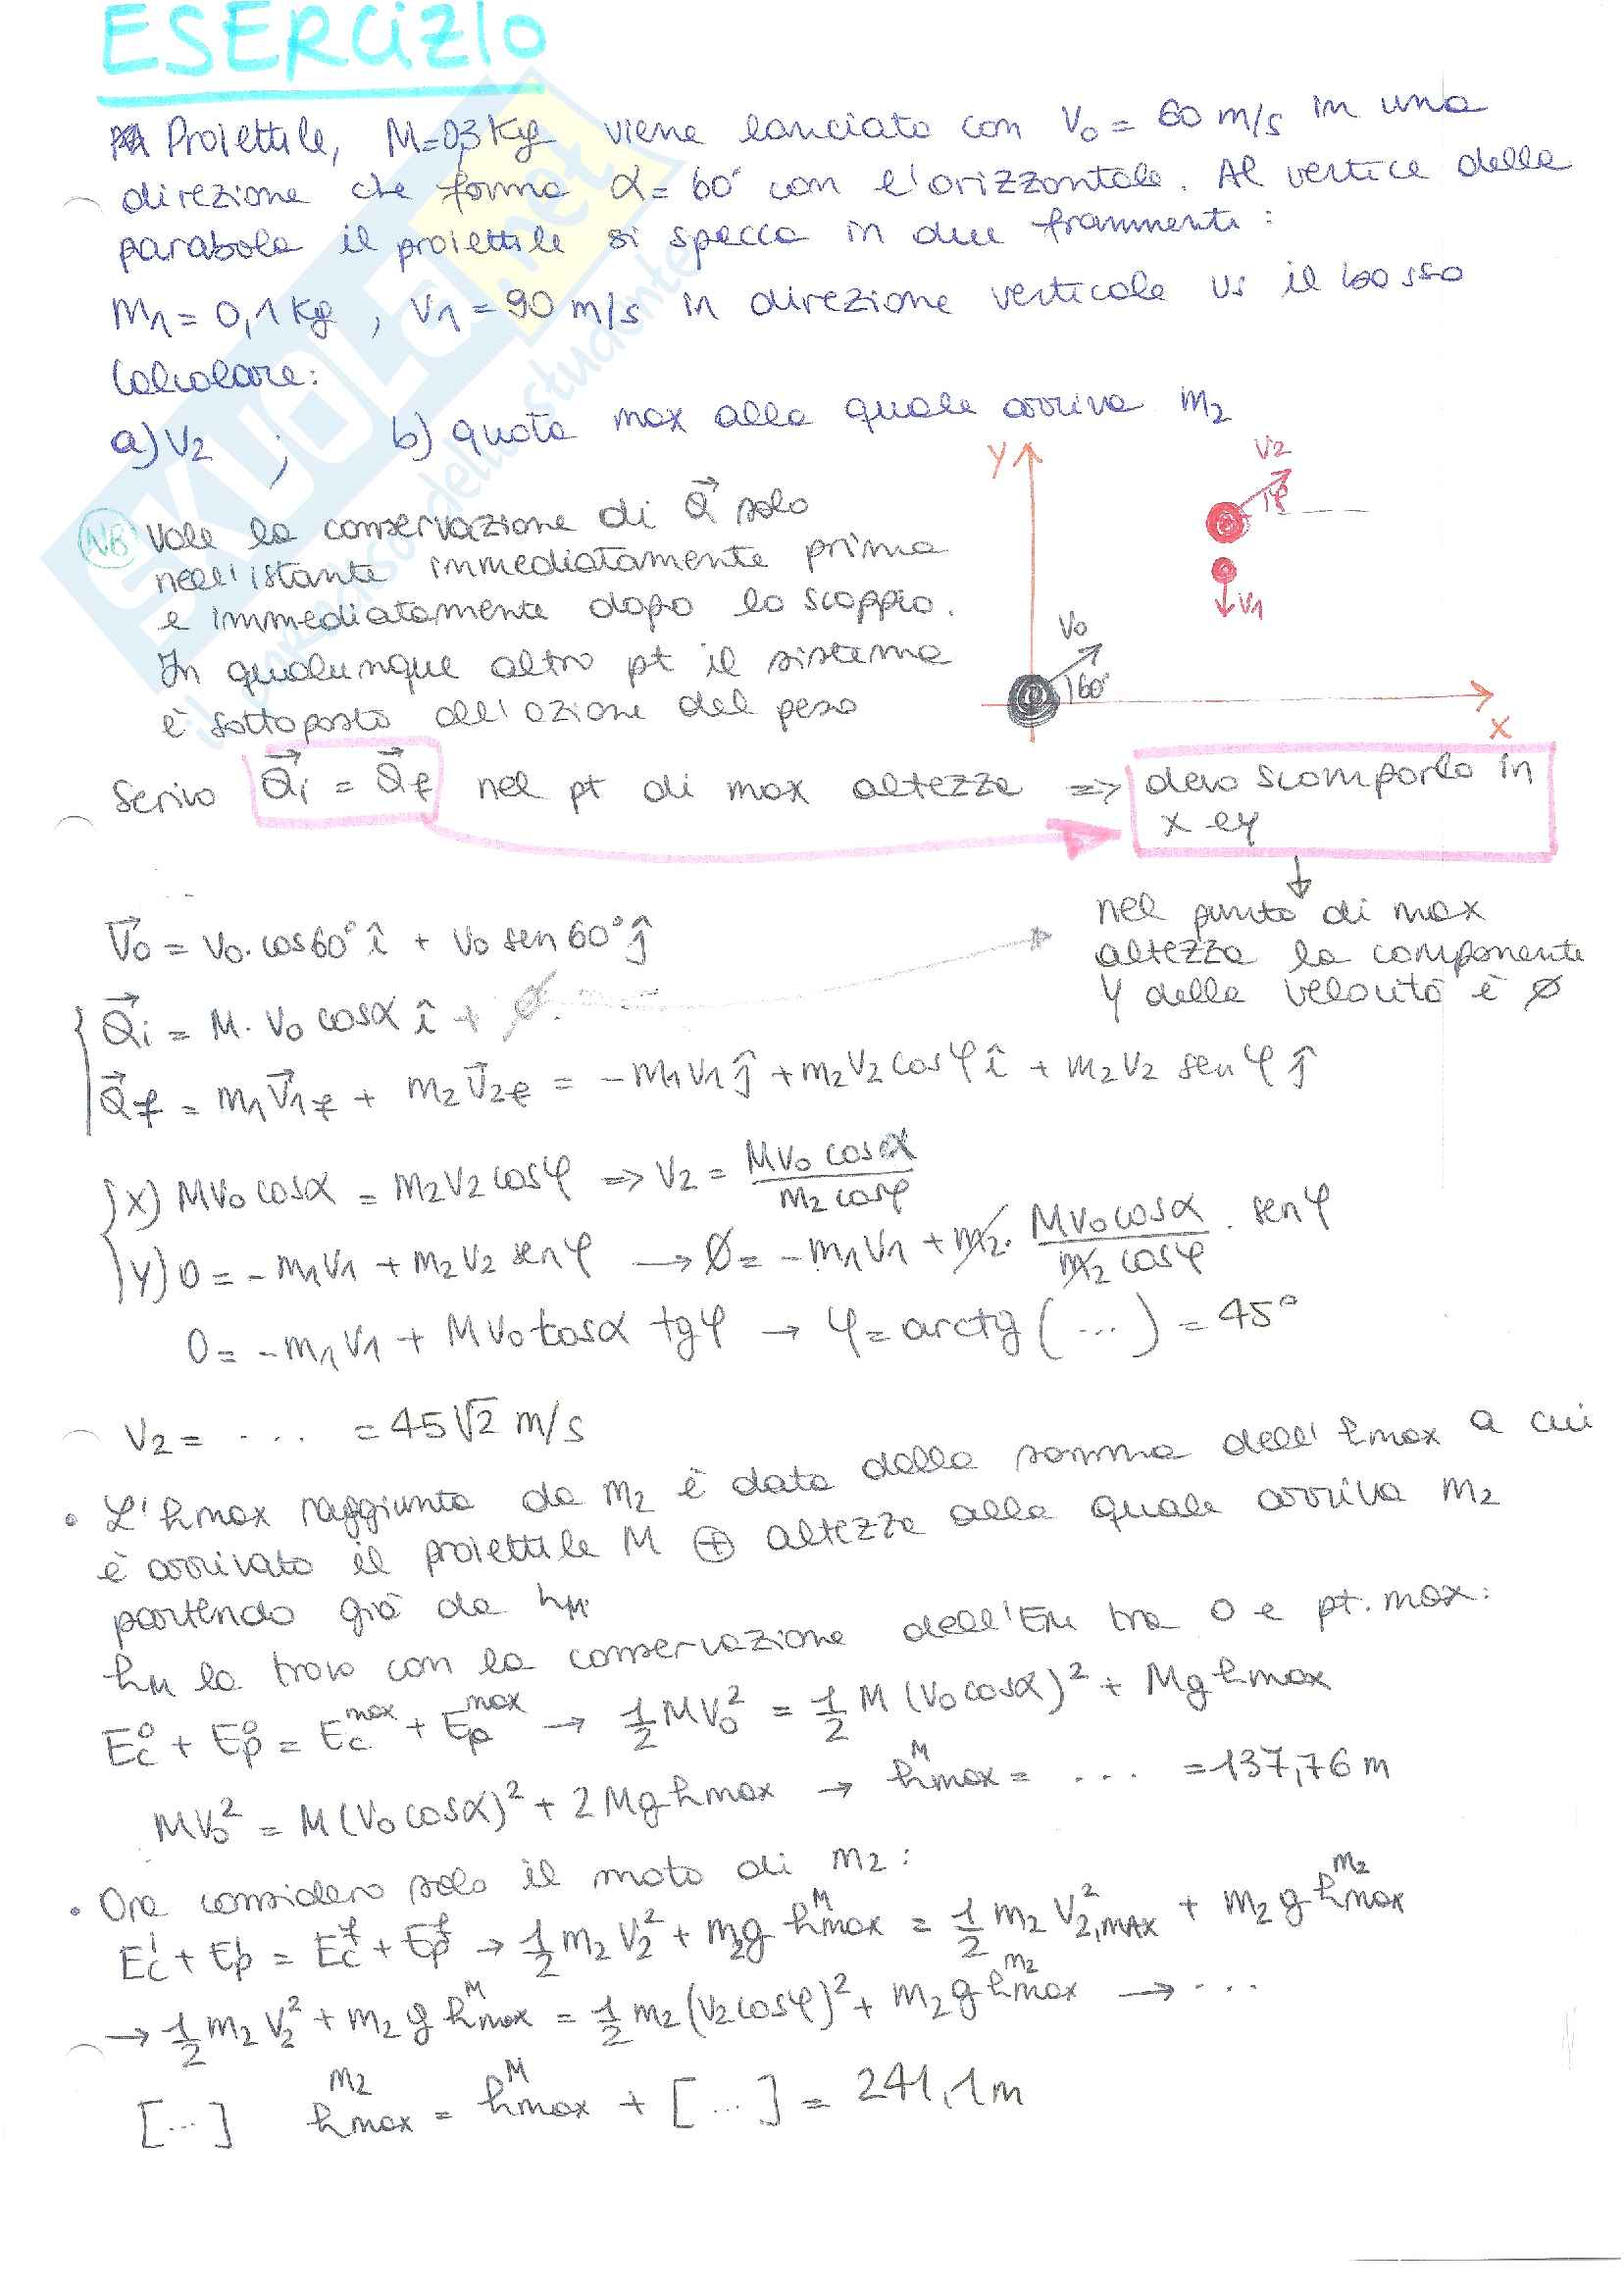 ESERCIZIO
Proiettile, M=0,3 Kg viene lanciato con V₀ = 60 m/s in una
direzione che forma α = 60° con l'orizzontale. Al vertice della
parabola il proiettile si spacca in due frammenti:
M₁ = 0,1 Kg , V₁ = 90 m/s in direzione verticale vs il basso
Calcolare:
a) V₂ ; b) quota max alla quale arriva m₂
NB Vale la conservazione di Q⃗ solo
nell'istante immediatamente prima
e immediatamente dopo lo scoppio.
In qualunque altro pt il sistema
è sottoposto all'azione del peso
Y
V₂
φ
V₁
V₀
60°
X
Scrivo Q⃗i = Q⃗f nel pt di max altezza => devo scomporlo in
x e y
nel punto di max
altezza la componente
Y della velocità è ∅
V⃗₀ = V₀·cos60° î + V₀ sen60° ĵ
Q⃗i = M·V₀ cosα î + ∅
Q⃗f = m₁V⃗₁f + m₂V⃗₂f = -m₁V₁ĵ + m₂V₂cosφ î + m₂V₂ senφ ĵ
x) MV₀cosα = m₂V₂cosφ => V₂ = MV₀cosα / m₂cosφ
y) 0 = -m₁V₁ + m₂V₂ senφ → ∅ = -m₁V₁ + m₂· MV₀cosα / m₂ cosφ · senφ
0 = -m₁V₁ + MV₀cosα tgφ → φ = arctg (...) = 45°
V₂ = ... = 45√2 m/s
• L'hmax raggiunta da m₂ è data dalla somma dell'hmax a cui
è arrivato il proiettile M ⊕ altezza alla quale arriva m₂
partendo già da hM.
hM la trovo con la conservazione dell'EM tra 0 e pt. max:
Ec⁰ + Ep⁰ = Ec^max + Ep^max → 1/2 MV₀² = 1/2 M (V₀cosα)² + Mg hmax
MV₀² = M(V₀cosα)² + 2Mg hmax → hmax^M = ... = 137,76 m
• Ora considero solo il moto di m₂:
Ec^i + Ep^i = Ec^f + Ep^f → 1/2 m₂V₂² + m₂g hmax^M = 1/2 m₂V²₂,MAX + m₂g hmax^m₂
→ 1/2 m₂V₂² + m₂g hmax^M = 1/2 m₂(V₂cosφ)² + m₂g hmax^m₂ → ...
[...] hmax^m₂ = hmax^M + [...] = 241,1 m